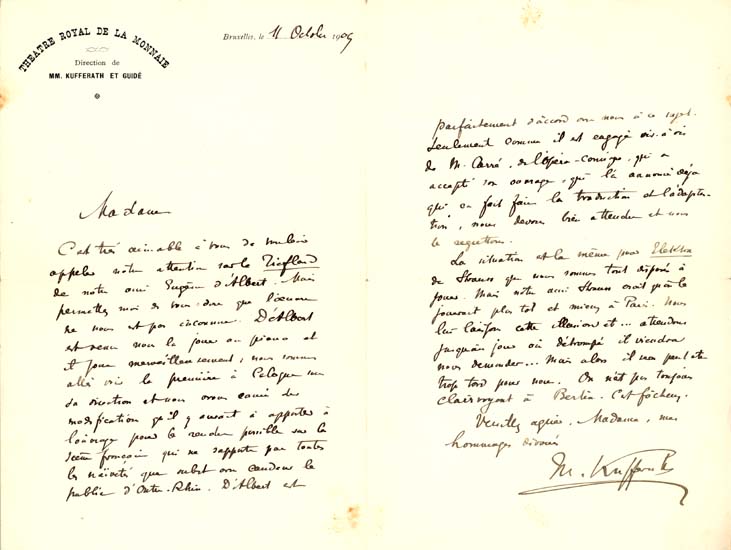 THÉATRE ROYAL DE LA MONNAIE
Direction de
MM. KUFFERATH ET GUIDÉ
Bruxelles, le 11 Octobre 1909
Madame
C'est très aimable à vous de vouloir
appeler notre attention sur le Tiefland
de notre ami Eugène d'Albert. Mais
permettez moi de vous dire que l'œuvre
ne nous est pas inconnue. D'Albert
est venu nous la jouer au piano et
il joue merveilleusement; nous sommes
allé voir la première à Cologne sur
sa direction et nous avons causé des
modification qu'il y aurait à apporter à
l'ouvrage pour le rendre possible sur la
scène français qui ne supporte pas toutes
les naïveté que subit avec candeur le
public d'Outre-Rhin. D'Albert est
parfaitement d'accord avec nous à ce sujet.
Seulement comme il est engagé vis-à-vis
de M. Carré, de l'Opéra-Comique, qui a
accepté son ouvrage, qui l'a annoncé déjà
qui en fait faire la traduction et l'adapta-
tion, nous devons bien attendre et nous
le regrettons.
La situation est la même pour Elektra
de Strauss que nous sommes tout disposé à
jouer. Mais notre ami Strauss croit qu'on le
jouerait plus tôt et mieux à Paris. Nous
lui laissons cette illusion et... attendons
jusqu'au jour où détrompé il viendra
nous demander... Mais alors il sera peut-être
trop tard pour nous. On n'est pas toujours
clairvoyant à Berlin. C'est fâcheux.
Veuillez agréer, Madame, mes
hommages dévoués
M. Kufferath